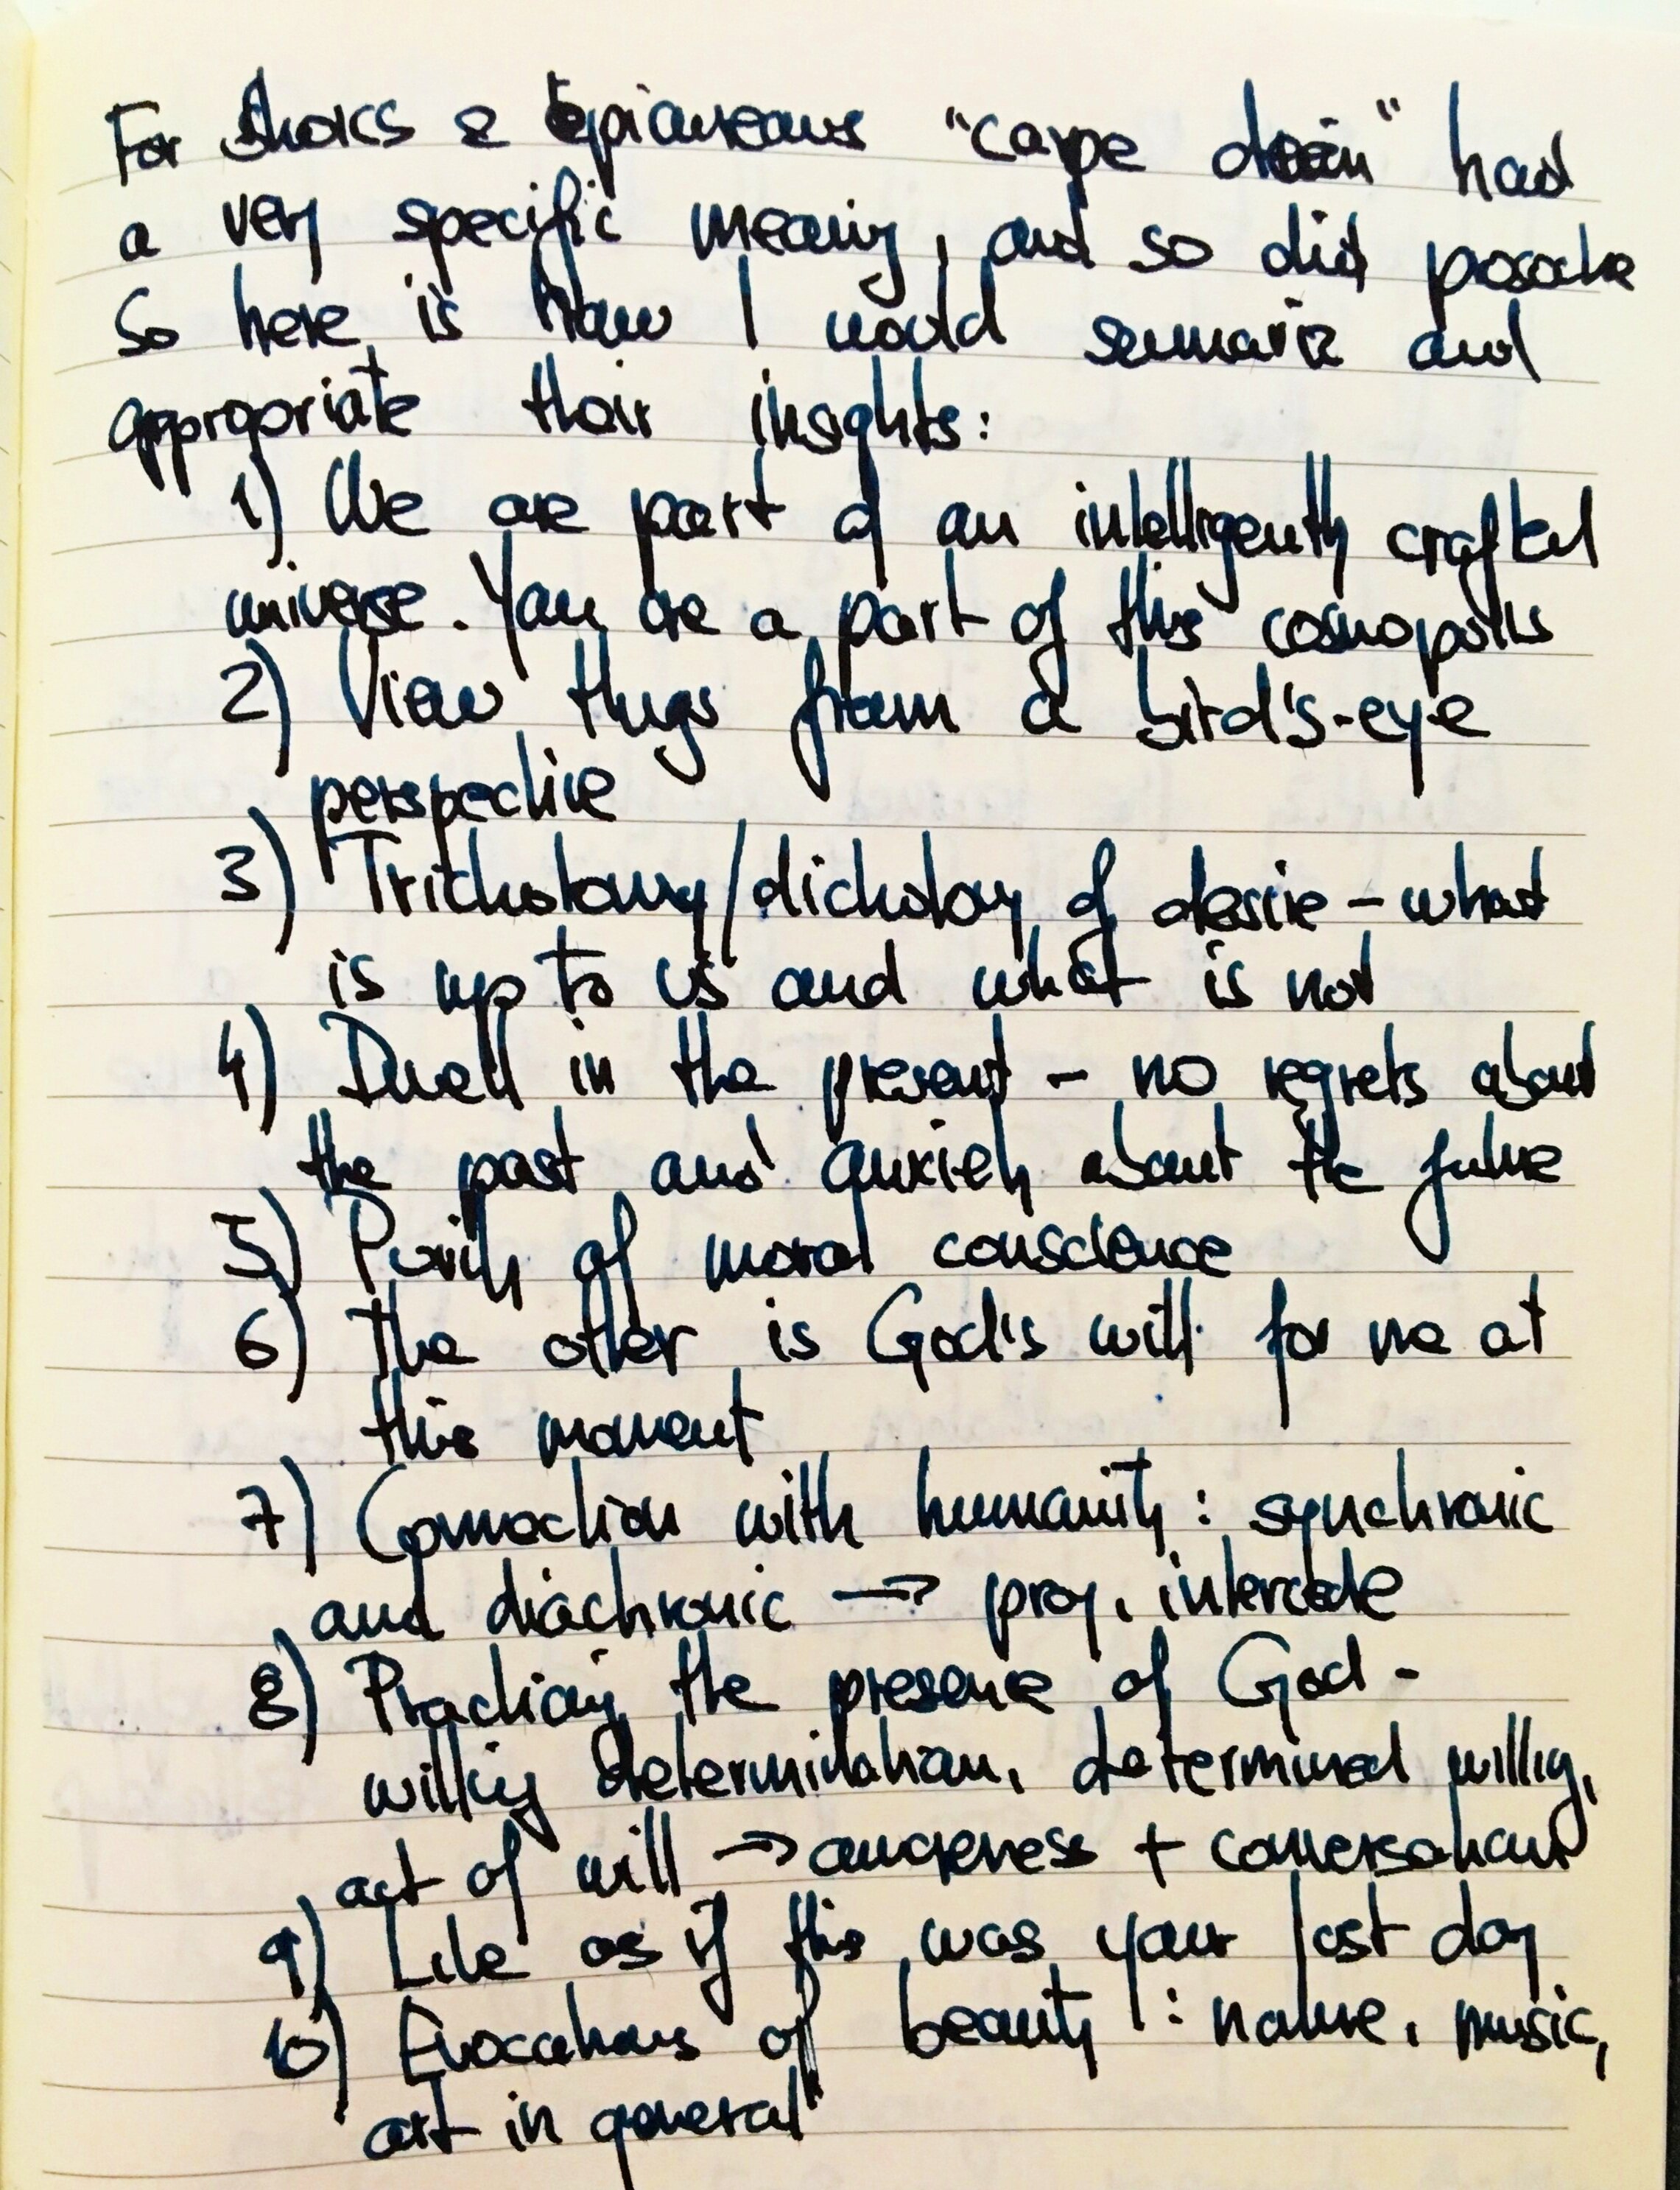 For Stoics & Epicureans "carpe diem" had
a very specific meaning, and so did prosoche
So here is how I would summarize and
appropriate their insights:
1) We are part of an intelligently crafted
universe. You are a part of this cosmopolis
2) View things from a bird's-eye
perspective
3) Trichotomy/dichotomy of desire - what
is up to us and what is not
4) Dwell in the present - no regrets about
the past and anxiety about the future
5) Purity of moral conscience
6) The other is God's will for me at
this moment
7) Connection with humanity: synchronic
and diachronic → pray, intercede
8) Practicing the presence of God -
willing determination, determined willing,
act of will → awareness + conversation
9) Live as if this was your last day
10) Evocations of beauty: nature, music,
art in general